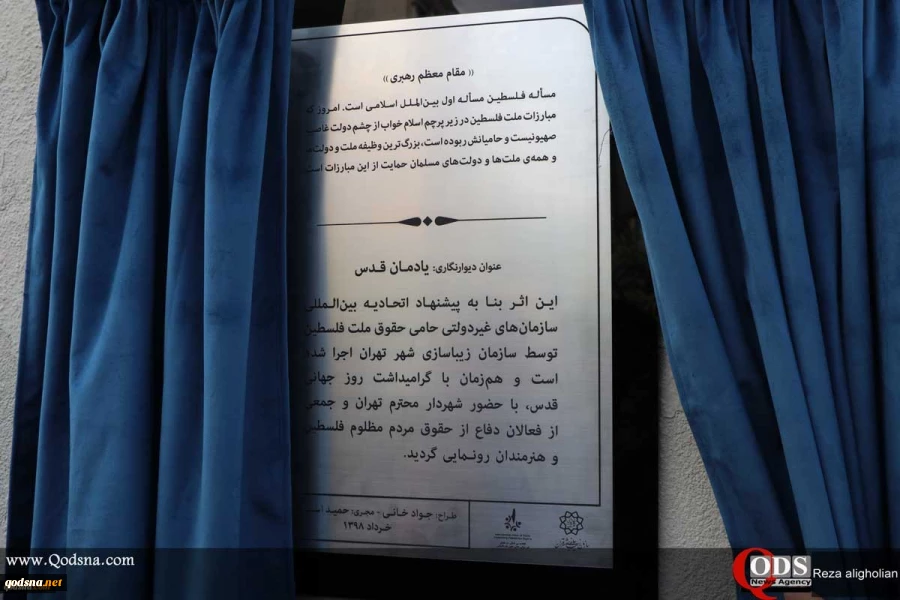 « مقام معظم رهبری »
مسأله فلسطین مسأله اول بین‌الملل اسلامی است. امروز که
مبارزات ملت فلسطین در زیر پرچم اسلام خواب از چشم دولت غاصب
صهیونیست و حامیانش ربوده است، بزرگ‌ترین وظیفه ملت و دولت
و همه‌ی ملت‌ها و دولت‌های مسلمان حمایت از این مبارزات است
عنوان دیوارنگاری: یادمان قدس
این اثر بنا به پیشنهاد اتحادیه بین‌المللی
سازمان‌های غیردولتی حامی حقوق ملت فلسطین
توسط سازمان زیباسازی شهر تهران اجرا شده
است و هم‌زمان با گرامیداشت روز جهانی
قدس، با حضور شهردار محترم تهران و جمعی
از فعالان دفاع از حقوق مردم مظلوم فلسطین
و هنرمندان رونمایی گردید.
طراح: جواد خانی - مجری: حمید
خرداد ۱۳۹۸
www.Qodsna.com
qodsna.net
QODS
News Agency
Reza aligholian